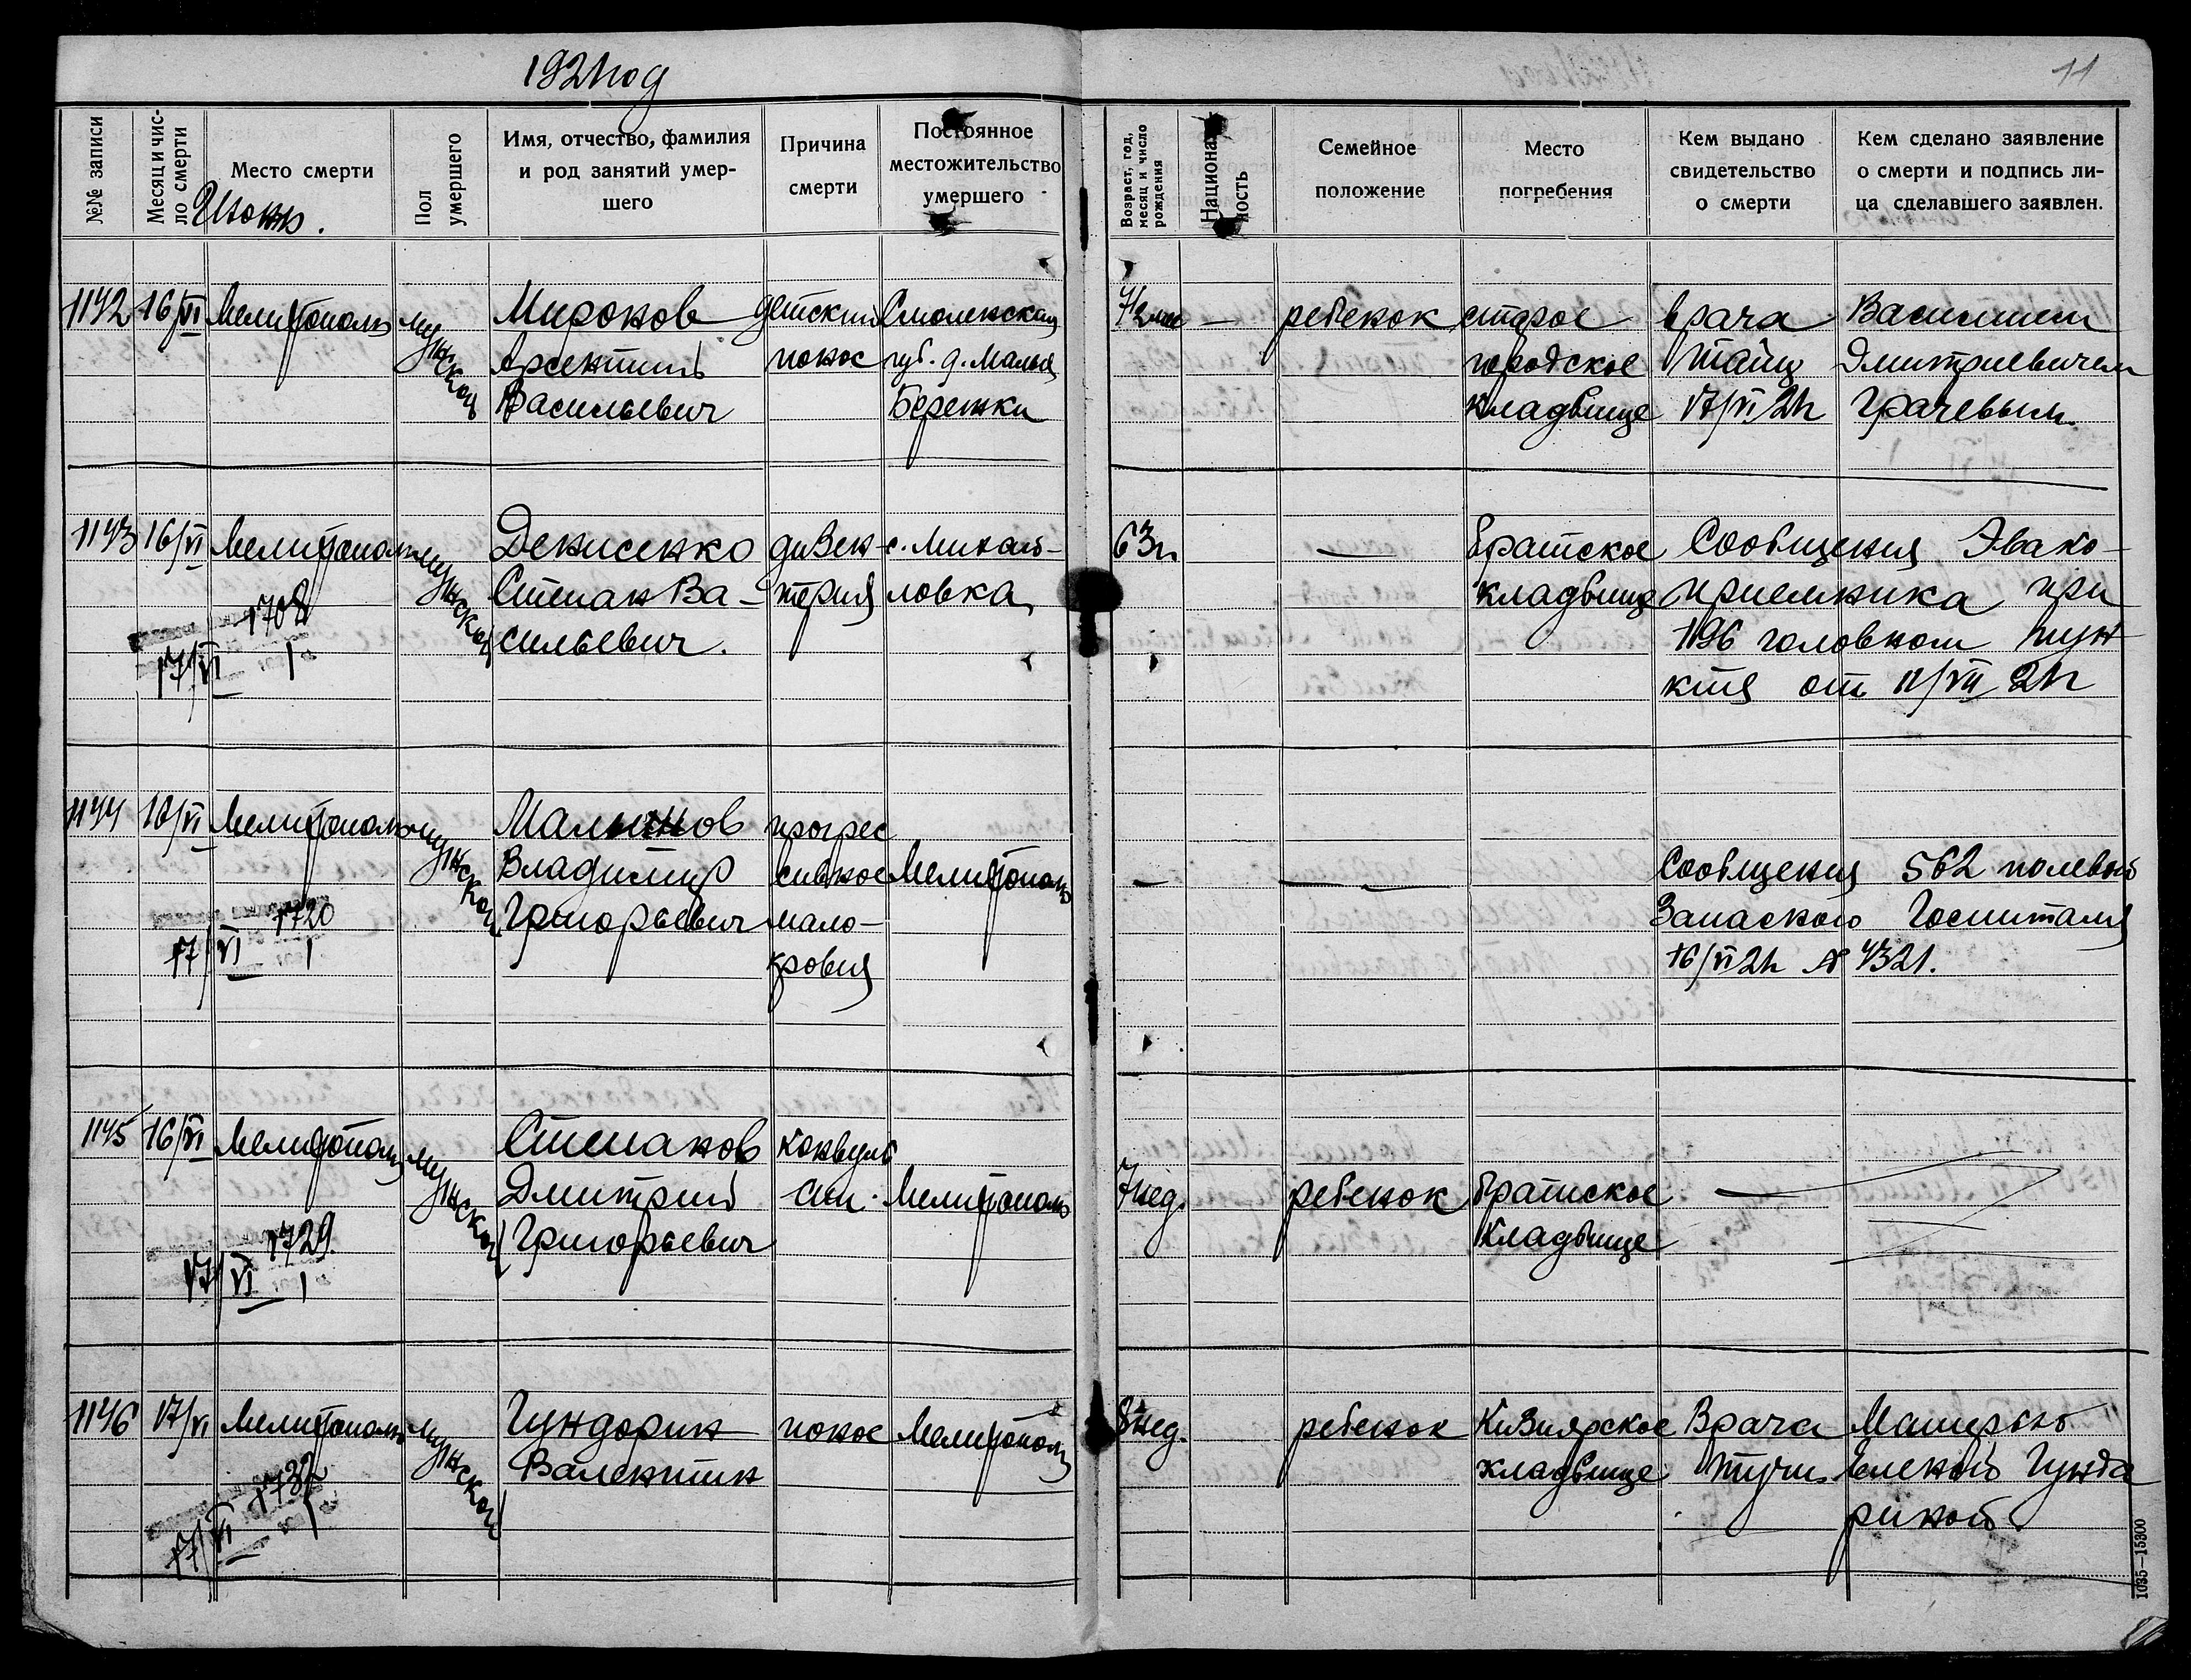 1921 год
11
№№ записи
Месяц и число смерти
Место смерти
Пол умершего
Имя, отчество, фамилия и род занятий умершего
Причина смерти
Постоянное местожительство умершего
Возраст, год, месяц и число рождения
Национальность
Семейное положение
Место погребения
Кем выдано свидетельство о смерти
Кем сделано заявление о смерти и подпись лица сделавшего заявлен.
Июнь.
1142 16/VI Мелитополь мужской Миронов детский Смоленская — ребенок старое врача Василием
Арсентий понос губ. д. Малые городское Тайц Дмитриевичем
Васильевич Бережки кладбище 17/VI 21г Грачевым
1143 16/VI Мелитополь мужской Денисенко дизен- с. Михай- 63г. — братское Сообщения Эвако-
Степан Ва- терия ловка кладбище приемника при
сильевич. 1196 головном пун-
кта от 11/VII 21г
1708
17/VI
1144 16/VI Мелитополь мужской Малинов прогрес
Владимир сивное Мелитополь — — Сообщения 562 полевой
Григорьевич мало- Запаского Госпиталя
кровия 16/VI 21г № 4321.
1720
17/VI
1145 16/VI Мелитополь мужской Степанов конвуль
Дмитрий сии. Мелитополь 7 нед. ребенок братское —
Григорьевич кладбище
1729
17/VI
1146 17/VI Мелитополь мужской Гундорин понос Мелитополь 8 нед. ребенок Кизиярское Врача Матерью
Валентин кладбище Еленой Гундо
риной
1732
17/VI
1035—15300